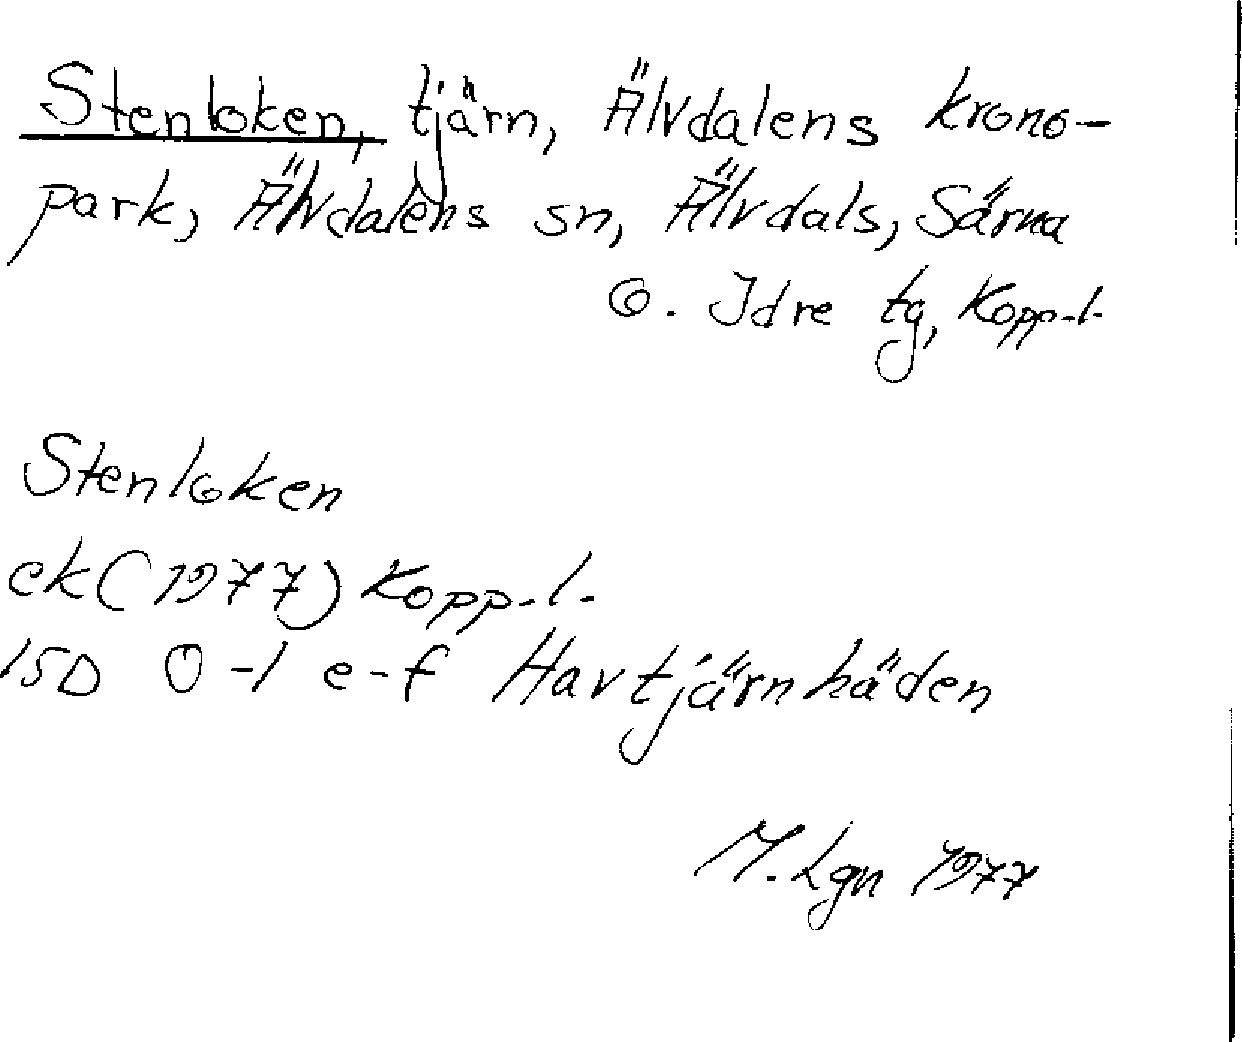 Stenloken, tjärn, Älvdalens krono-
park, Älvdalens sn, Älvdals, Särna
o. Idre tg, Kopp.l.
Stenloken
ek(1977) Kopp.l.
15D 0-1 e-f Havtjärnhäden
M. Lgn 1977